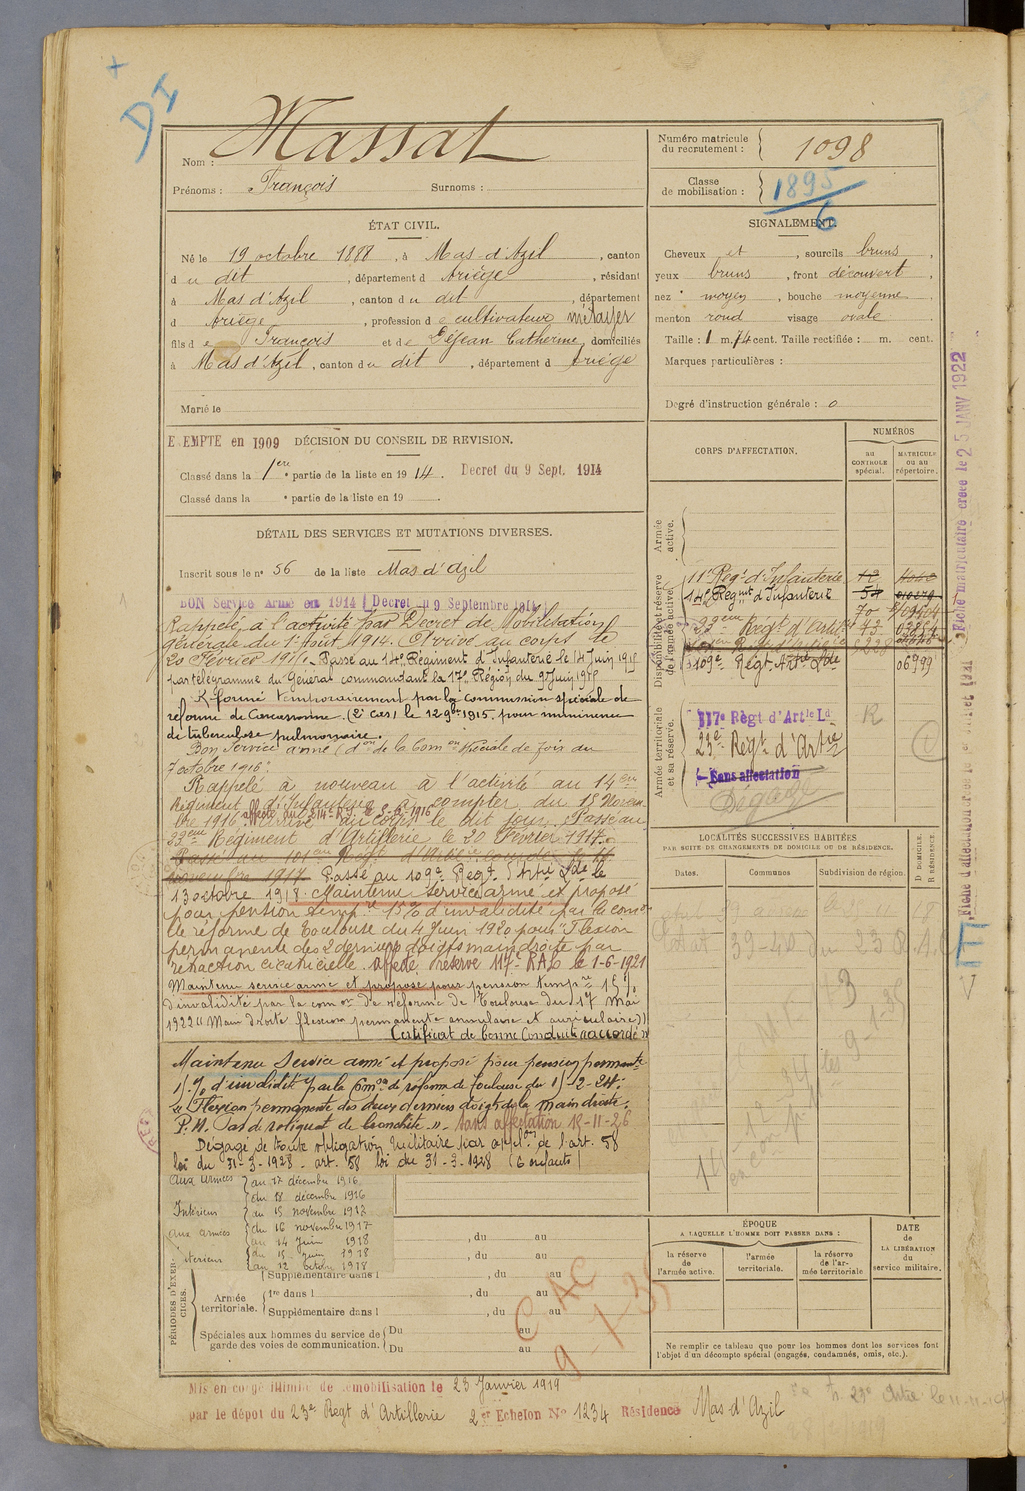 DI
Nom : Massat
Prénoms : François Surnoms :
Numéro matricule du recrutement : 1098
Classe de mobilisation : 1895
6
ÉTAT CIVIL.
Né le 19 octobre 1888, à Mas-d'Azil, canton
du dit, département d Ariège, résidant
à Mas d'Azil, canton du dit, département
d Ariège, profession de cultivateur métayer
fils de François et de Déjean Catherine, domiciliés
à Mas d'Azil, canton du dit, département d Ariège
Marié le
SIGNALEMENT.
Cheveux et, sourcils bruns,
yeux bruns, front découvert,
nez moyen, bouche moyenne,
menton rond visage ovale
Taille : 1 m. 74 cent. Taille rectifiée : m. cent.
Marques particulières :
Degré d'instruction générale : 0
EXEMPTE en 1909 DÉCISION DU CONSEIL DE REVISION.
Classé dans la 1ère partie de la liste en 1914. Décret du 9 Sept. 1914
Classé dans la e partie de la liste en 19
DÉTAIL DES SERVICES ET MUTATIONS DIVERSES.
Inscrit sous le n° 56 de la liste Mas d'Azil
BON Service Armé en 1914 Décret du 9 Septembre 1914
Rappelé à l'activité par Décret de Mobilisation
générale du 1er Août 1914. Arrivé au corps le
20 Février 1915. Passé au 14e Régiment d'Infanterie le 14 Juin 1915
par télégramme du Général commandant la 17e Région du 9 Juin 1915
Réformé temporairement par la commission spéciale de
réforme de Carcassonne (2e cas) le 12 9bre 1915, pour imminence
de tuberculose pulmonaire.
Bon Service armé (don de la Comon spéciale de Foix du
7 octobre 1916.
Rappelé à nouveau à l'activité au 14em
Régiment d'Infanterie à compter du 15 Novem-
bre 1916. Arrivé au corps le dit jour. Passé au
23eme Régiment d'Artillerie le 20 Février 1917.
Passé au 101em Regt d'Artie lourde le 16
novembre 1917 Passé au 109e Régt Artie Lde le
13 octobre 1918. Maintenu service armé et proposé
pour pension tempre 15% d'invalidité par la comon
de réforme de Toulouse du 4 Juin 1920 pour "Flexion
permanente des 2 derniers doigts main droite par
rétraction cicatricielle. Affecté réserve 117e RAL le 1-6-1921
Maintenu service armé et proposé pour pension tempre 15%
d'invalidité par la comon de réforme de Toulouse du 17 Mai
1922 "Main droite flexion permanente annulaire et auriculaire"
Certificat de bonne Conduite accordé
Maintenu service armé et proposé pour pension permante
15 % d'invalidité par la Comon de réforme de Toulouse du 15-2-24:
"Flexion permanente des deux derniers doigts de la main droite.
P.N. Pas de reliquat de bronchite". Sans affectation 15-11-26
Dégagé de toute obligation militaire par applon de l'art. 58
loi du 31-3-1928. art. 58 loi du 31-3-1928 (6 enfants)
Aux armées au 17 décembre 1916
Intérieur du 18 décembre 1916
au 15 novembre 1917
Aux armées du 16 novembre 1917
au 14 juin 1918
Intérieur du 15 juin 1918
au 12 octobre 1918
CORPS D'AFFECTATION.
NUMÉROS
au CONTRÔLE spécial.
MATRICULE ou au répertoire.
Armée active.
Disponibilité et réserve de l'armée active.
11e Régt d'Infanterie
14e Régiment d'Infanterie
23eme Régt d'Artie
109e Régt Artie Lde 06799
Armée territoriale et sa réserve.
117e Règt d'Artle Lde R
23e Régt d'Artie
Sans affectation
Dégagé
LOCALITÉS SUCCESSIVES HABITÉES
PAR SUITE DE CHANGEMENTS DE DOMICILE OU DE RÉSIDENCE.
Dates. Communes Subdivision de région. D DOMICILE. R RÉSIDENCE.
, du au
, du au
PÉRIODES D'EXERCICES.
Supplémentaire dans l , du au
Armée territoriale. 1re dans l , du au
Supplémentaire dans l , du au
Spéciales aux hommes du service de garde des voies de communication. Du au
Du au
CAC
9-1-35
ÉPOQUE
A LAQUELLE L'HOMME DOIT PASSER DANS :
la réserve de l'armée active.
l'armée territoriale.
la réserve de l'armée territoriale
DATE DE LA LIBÉRATION du service militaire.
Ne remplir ce tableau que pour les hommes dont les services font
l'objet d'un décompte spécial (engagés, condamnés, omis, etc.).
Mis en congé illimité de démobilisation le 23 Janvier 1919
par le dépot du 23e Regt d'Artillerie 2er Echelon N° 1234 Résidence Mas d'Azil
Fiche matriculaire créée le 25 JANV 1922